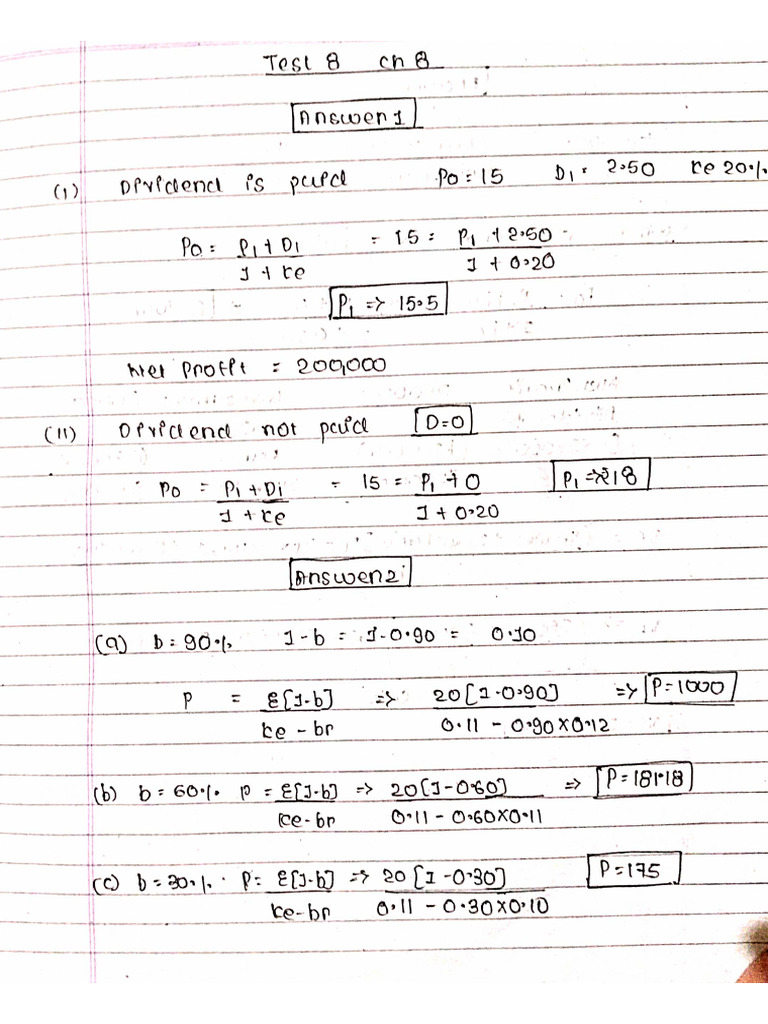 Test 8 ch 8
Answer 1
(i) Dividend is paid P0 = 15 D1 = 2.50 Ke 20%
P0 = P1 + D1 / 1 + Ke = 15 = P1 + 2.50 / 1 + 0.20
P1 => 15.5
Net Profit = 200,000
(ii) Dividend not paid D=0
P0 = P1 + D1 / 1 + Ke = 15 = P1 + 0 / 1 + 0.20 P1 => ₹18
Answer 2
(a) b = 90% 1-b = 1-0.90 = 0.10
P = E[1-b] / Ke - br => 20[1-0.90] / 0.11 - 0.90×0.12 => P=1000
(b) b = 60% P = E[1-b] / Ke-br => 20[1-0.60] / 0.11 - 0.60×0.11 => P=181.18
(c) b = 30% P = E[1-b] / Ke-br => 20[1-0.30] / 0.11 - 0.30×0.10 P=175